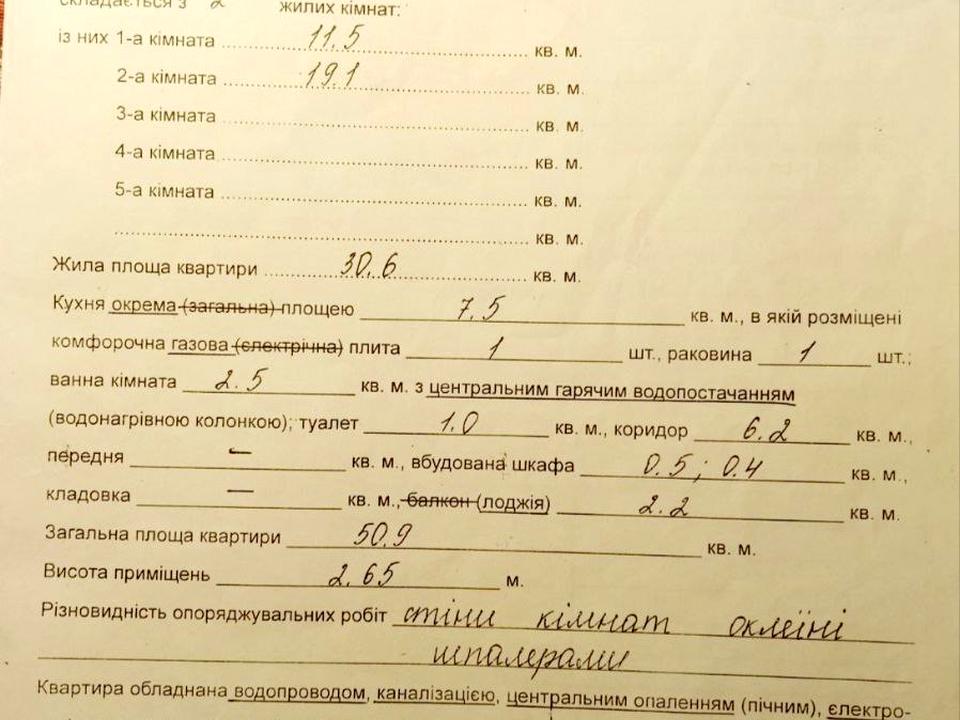 складається з 2 жилих кімнат:
із них 1-а кімната 11.5 кв. м.
2-а кімната 19.1 кв. м.
3-а кімната кв. м.
4-а кімната кв. м.
5-а кімната кв. м.
кв. м.
Жила площа квартири 30.6 кв. м.
Кухня окрема (загальна) площею 7.5 кв. м., в якій розміщені
комфорочна газова (єлектрічна) плита 1 шт., раковина 1 шт.;
ванна кімната 2.5 кв. м. з центральним гарячим водопостачанням
(водонагрівною колонкою); туалет 1.0 кв. м., коридор 6.2 кв. м.,
передня — кв. м., вбудована шкафа 0.5; 0.4 кв. м.,
кладовка — кв. м., балкон (лоджія) 2.2 кв. м.
Загальна площа квартири 50.9 кв. м.
Висота приміщень 2.65 м.
Різновидність опоряджувальних робіт стіни кімнат оклеїні
шпалерами
Квартира обладнана водопроводом, каналізацією, центральним опаленням (пічним), єлектро-